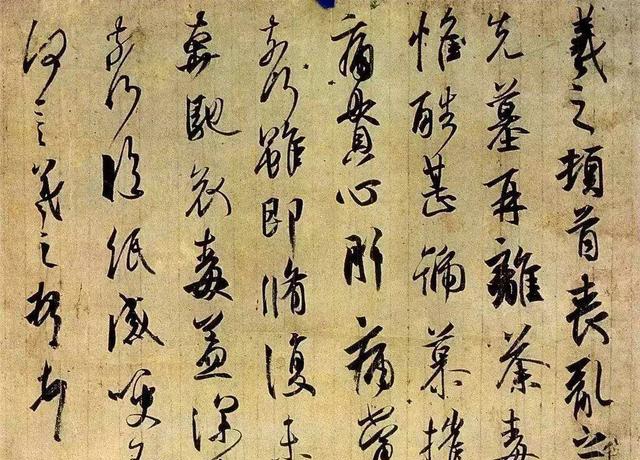 羲之頓首喪亂之
先墓再離荼毒
惟酷甚號慕摧
痛貫心肝痛當
奈何雖即脩復未
奔馳哀毒益深
奈何臨紙感哽
何言羲之頓首